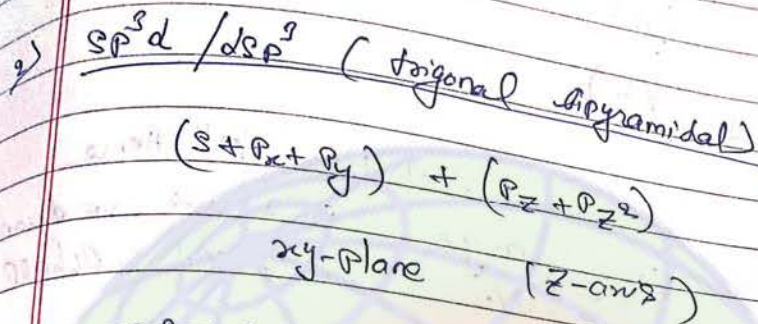 2) sp³d / dsp³ (trigonal bipyramidal)
(s + Px + Py) + (Pz + Pz²)
xy-plane (z-axis)